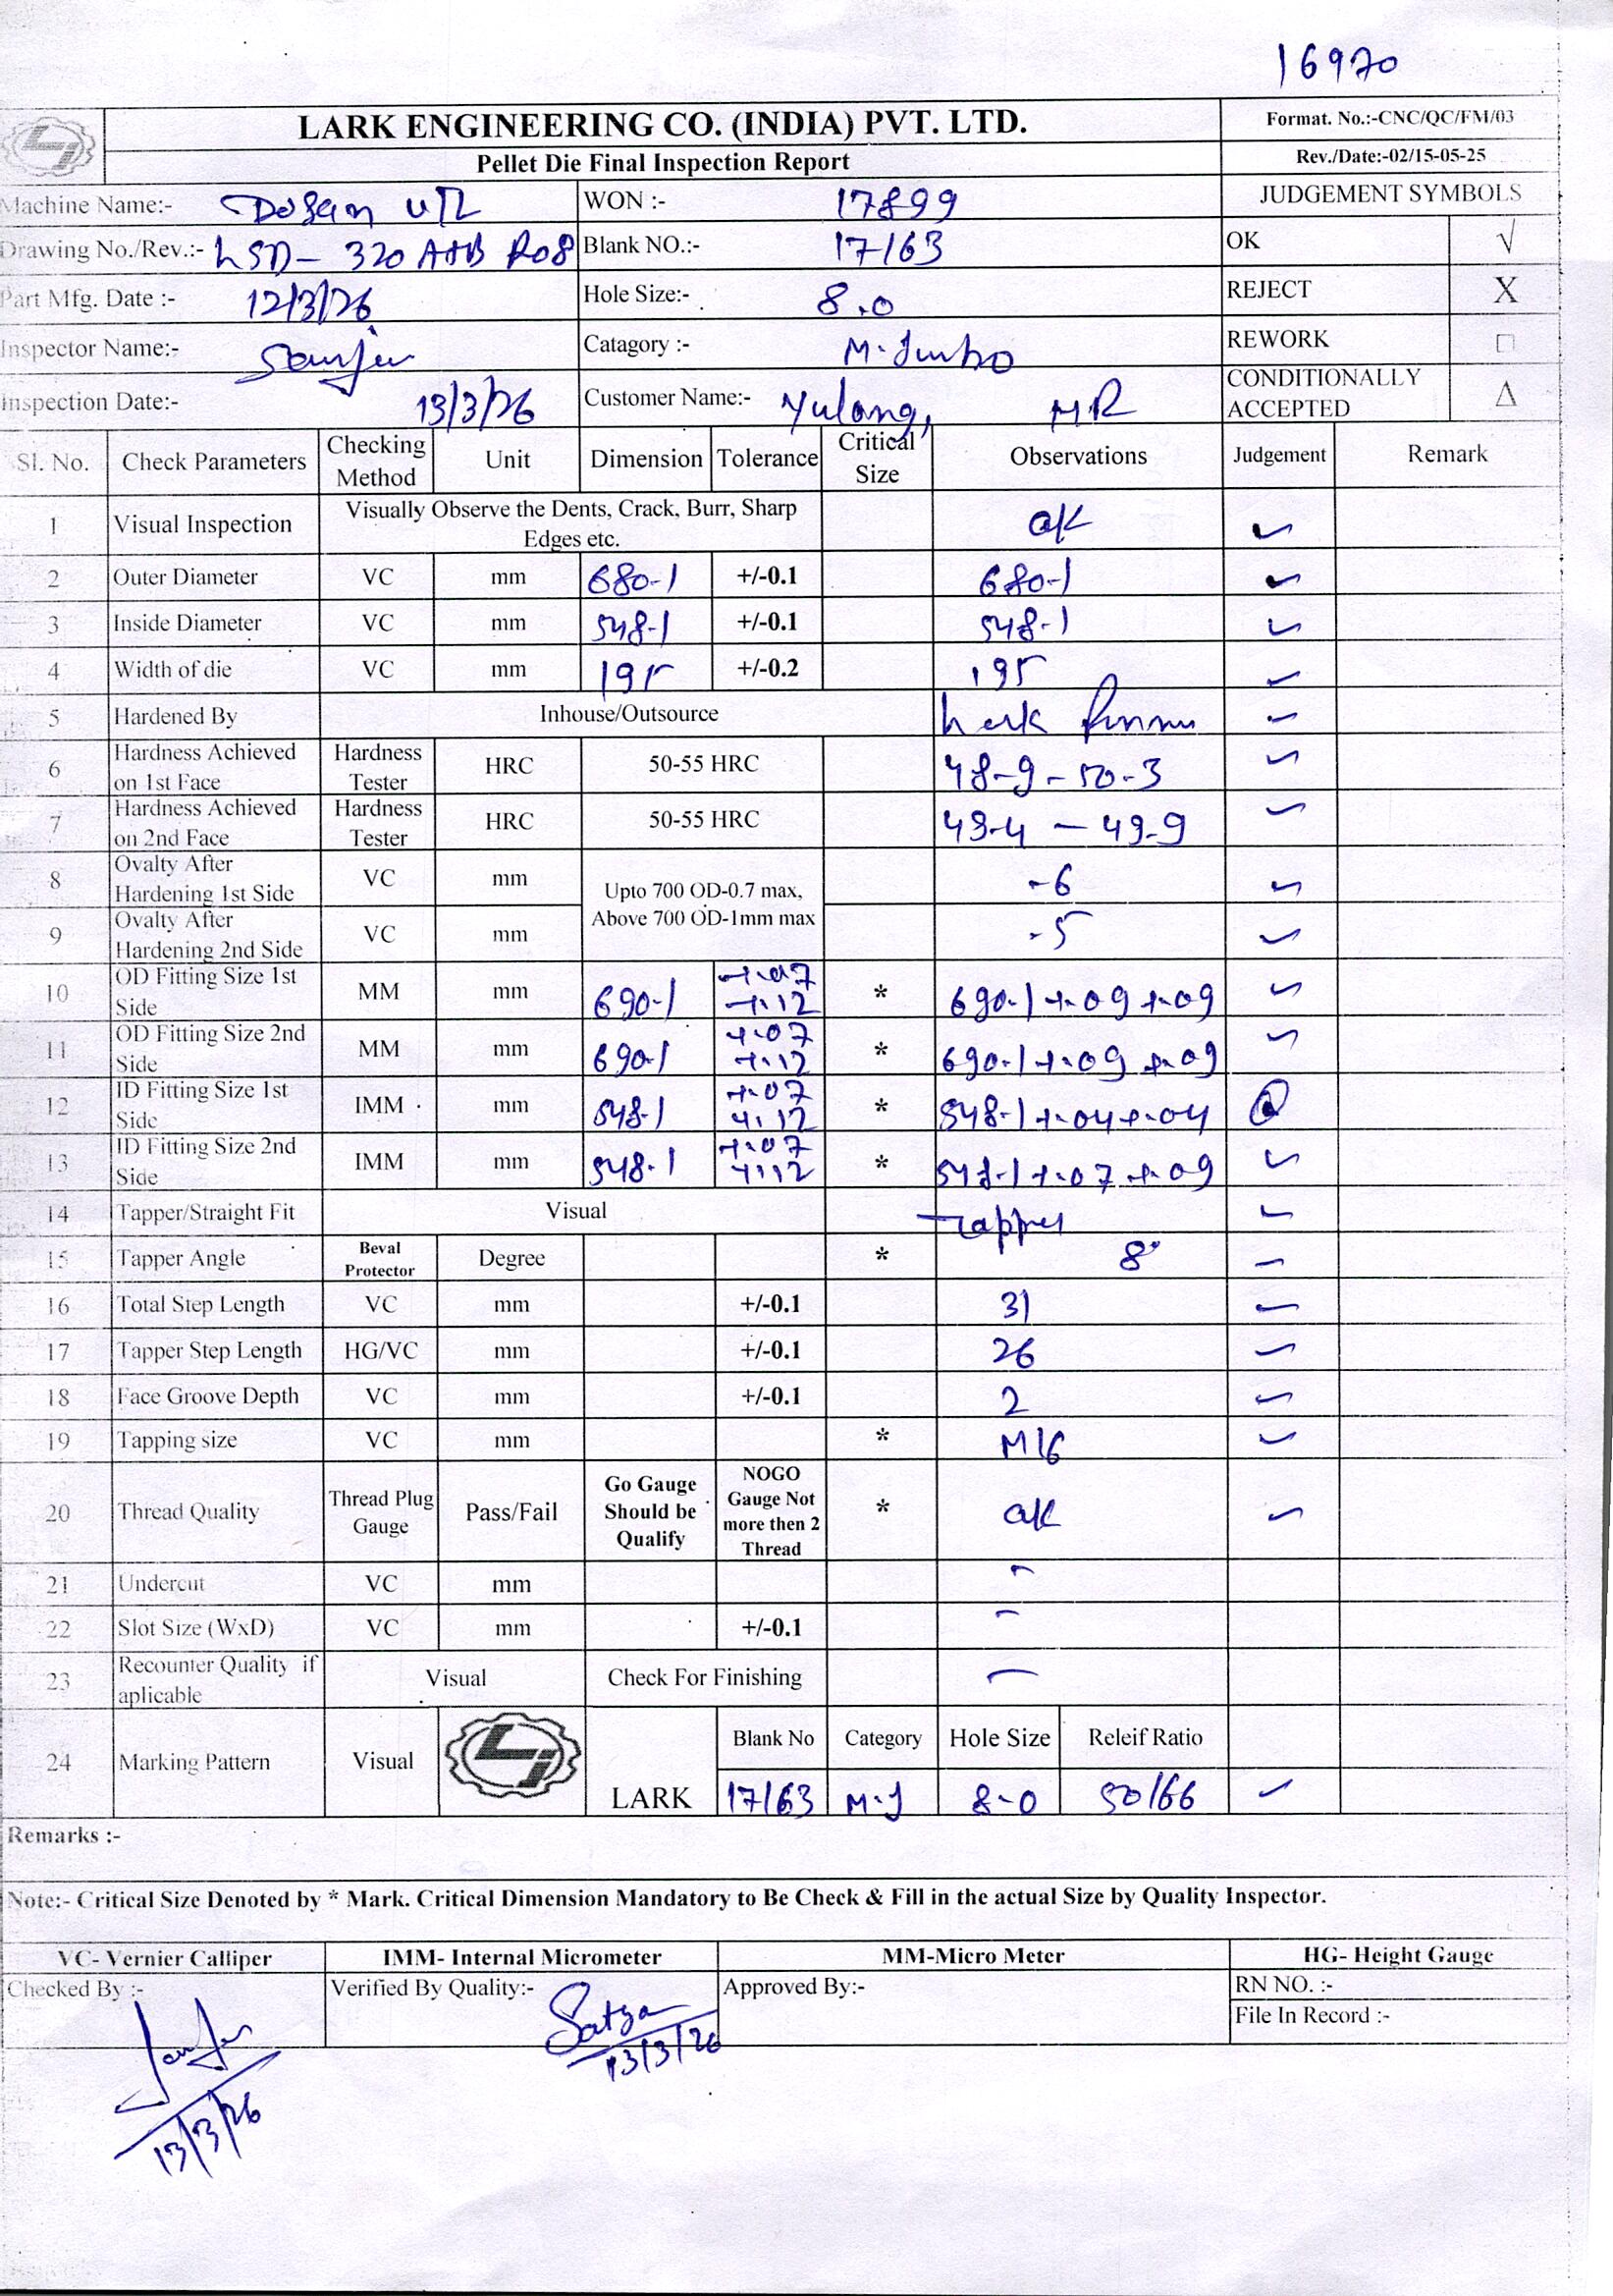 16970
LARK ENGINEERING CO. (INDIA) PVT. LTD.
Format. No.:-CNC/QC/FM/03
Pellet Die Final Inspection Report
Rev./Date:-02/15-05-25
Machine Name:- WON :- 17899 JUDGEMENT SYMBOLS
Drawing No./Rev.:- LSD- 320 A+B R08 Blank NO.:- 17/63 OK √
Part Mfg. Date :- 12/3/26 Hole Size:- 8.0 REJECT X
Inspector Name:- Catagory :- M-Jumbo REWORK □
Inspection Date:- 13/3/26 Customer Name:- Yulong, MR CONDITIONALLY ACCEPTED Δ
Sl. No. Check Parameters Checking Method Unit Dimension Tolerance Critical Size Observations Judgement Remark
1 Visual Inspection Visually Observe the Dents, Crack, Burr, Sharp Edges etc. ok ✓
2 Outer Diameter VC mm 680-1 +/-0.1 680-1 ✓
3 Inside Diameter VC mm 548-1 +/-0.1 548-1 ✓
4 Width of die VC mm 195 +/-0.2 195 ✓
5 Hardened By Inhouse/Outsource Lark ✓
6 Hardness Achieved on 1st Face Hardness Tester HRC 50-55 HRC 48-9 - 50-3 ✓
7 Hardness Achieved on 2nd Face Hardness Tester HRC 50-55 HRC 49-4 - 49-9 ✓
8 Ovalty After Hardening 1st Side VC mm Upto 700 OD-0.7 max, Above 700 OD-1mm max -6 ✓
9 Ovalty After Hardening 2nd Side VC mm -5 ✓
10 OD Fitting Size 1st Side MM mm 690-1 +.07 +.12 * 690-1 +.09 +.09 ✓
11 OD Fitting Size 2nd Side MM mm 690-1 +.07 +.12 * 690-1 +.09 +.09 ✓
12 ID Fitting Size 1st Side IMM mm 548-1 +.07 +.12 * 548-1 +.04 +.04
13 ID Fitting Size 2nd Side IMM mm 548-1 +.07 +.12 * 548-1 +.07 +.09 ✓
14 Tapper/Straight Fit Visual Tapper ✓
15 Tapper Angle Beval Protector Degree * 8° ✓
16 Total Step Length VC mm +/-0.1 31 ✓
17 Tapper Step Length HG/VC mm +/-0.1 26 ✓
18 Face Groove Depth VC mm +/-0.1 2 ✓
19 Tapping size VC mm * M16 ✓
20 Thread Quality Thread Plug Gauge Pass/Fail Go Gauge Should be Qualify NOGO Gauge Not more then 2 Thread * ok ✓
21 Undercut VC mm -
22 Slot Size (WxD) VC mm +/-0.1 -
23 Recounter Quality if aplicable Visual Check For Finishing -
Blank No Category Hole Size Releif Ratio
24 Marking Pattern Visual LARK 17/63 M-J 8-0 50/66 ✓
Remarks :-
Note:- Critical Size Denoted by * Mark. Critical Dimension Mandatory to Be Check & Fill in the actual Size by Quality Inspector.
VC- Vernier Calliper IMM- Internal Micrometer MM-Micro Meter HG- Height Gauge
Checked By :- Verified By Quality:- Satya Approved By:- RN NO. :-
13/3/26 File In Record :-
13/3/26